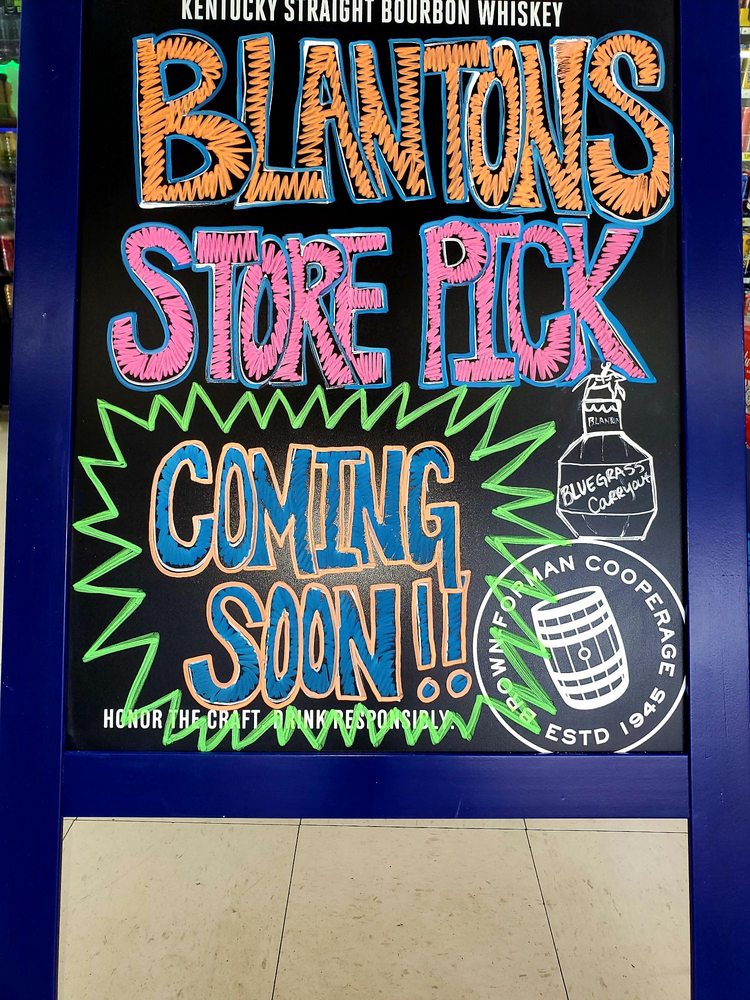 KENTUCKY STRAIGHT BOURBON WHISKEY
BLANTONS
STORE PICK
COMING
SOON!!
BLANTON
BLUEGRASS
Carryout
BROWN-FORMAN COOPERAGE
ESTD 1945
HONOR THE CRAFT. DRINK RESPONSIBLY.